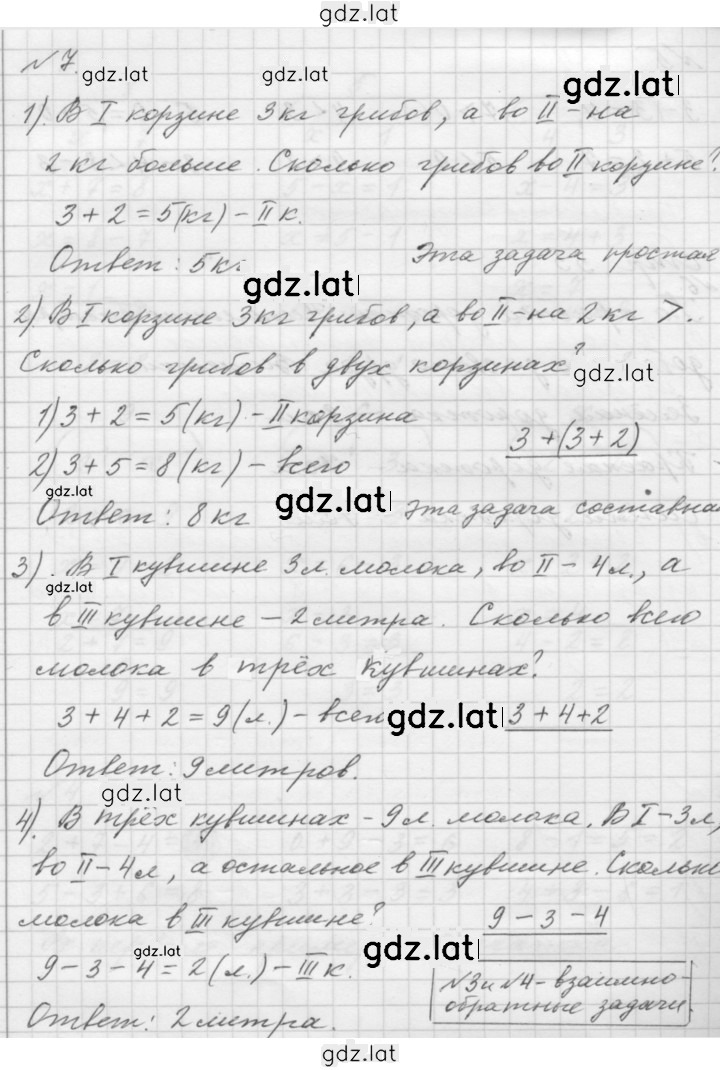 gdz.lat
№7
gdz.lat gdz.lat gdz.lat
1). В I корзине 3 кг грибов, а во II - на
2 кг больше. Сколько грибов во II корзине?
3 + 2 = 5 (кг) - II к.
Ответ: 5 кг. gdz.lat Эта задача простая
2). В I корзине 3 кг грибов, а во II - на 2 кг >.
Сколько грибов в двух корзинах?
gdz.lat
1) 3 + 2 = 5 (кг) - II корзина
3 + (3 + 2)
2) 3 + 5 = 8 (кг) - всего
gdz.lat gdz.lat
Ответ: 8 кг Эта задача составная
3). В I кувшине 3 л. молока, во II - 4 л., а
gdz.lat
в III кувшине - 2 литра. Сколько всего
молока в трёх кувшинах?
3 + 4 + 2 = 9 (л.) - всего gdz.lat 3 + 4 + 2
Ответ: 9 литров.
gdz.lat
4). В трёх кувшинах - 9 л. молока. В I - 3 л,
во II - 4 л, а остальное в III кувшине. Сколько
молока в III кувшине? 9 - 3 - 4
gdz.lat gdz.lat
9 - 3 - 4 = 2 (л.) - III к.
№3 и №4 - взаимно-
обратные задачи.
Ответ: 2 литра.
gdz.lat